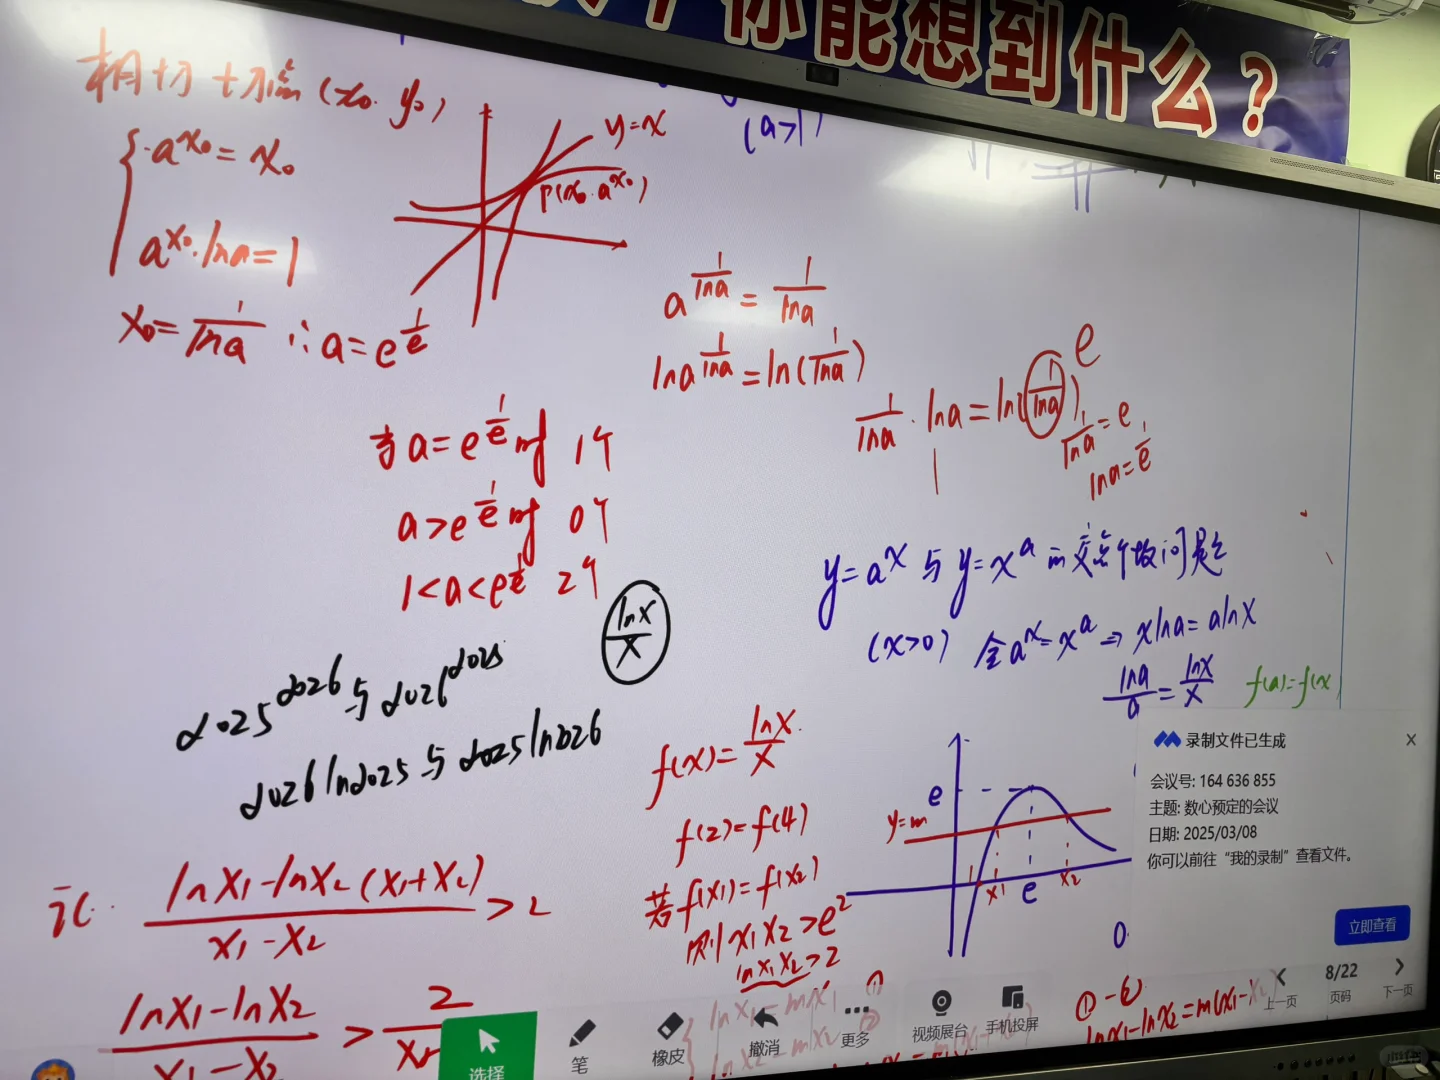 你能想到什么？
(a>1)
相切 切点 (x₀, y₀)
a^{x₀} = x₀
a^{x₀}·lna = 1
x₀ = 1/lna ∴ a = e^{1/e}
y=x
P(x₀, a^{x₀})
a^{1/lna} = 1/lna
lna^{1/lna} = ln(1/lna)
1/lna · lna = ln(1/lna)
e
1
1/lna = e
lna = 1/e
当 a = e^{1/e} 时 1个
a > e^{1/e} 时 0个
1<a<e^{1/e} 2个
lnx/x
y=a^x 与 y=x^a 的交点个数问题
(x>0) 令 a^x = x^a ⇒ xlna = alnx
lna/a = lnx/x f(a)=f(x
2025^{2026} 与 2026^{2025}
2026ln2025 与 2025ln2026
f(x) = lnx/x
f(2)=f(4)
若 f(x₁)=f(x₂)
则 x₁x₂>e²
lnx₁x₂>2
e
y=m
1 x₁ e x₂
0
证
lnx₁-lnx₂(x₁+x₂)/x₁-x₂ > 2
lnx₁-lnx₂/x₁-x₂ > 2/x₁
lnx₁=mx₁ ①
lnx₂=mx₂ ②
①-②
lnx₁-lnx₂=m(x₁-x₂
录制文件已生成
会议号: 164 636 855
主题: 数心预定的会议
日期: 2025/03/08
你可以前往“我的录制”查看文件。
立即查看
选择
笔
橡皮
撤消
更多
视频展台
手机投屏
上一页
8/22
页码
下一页